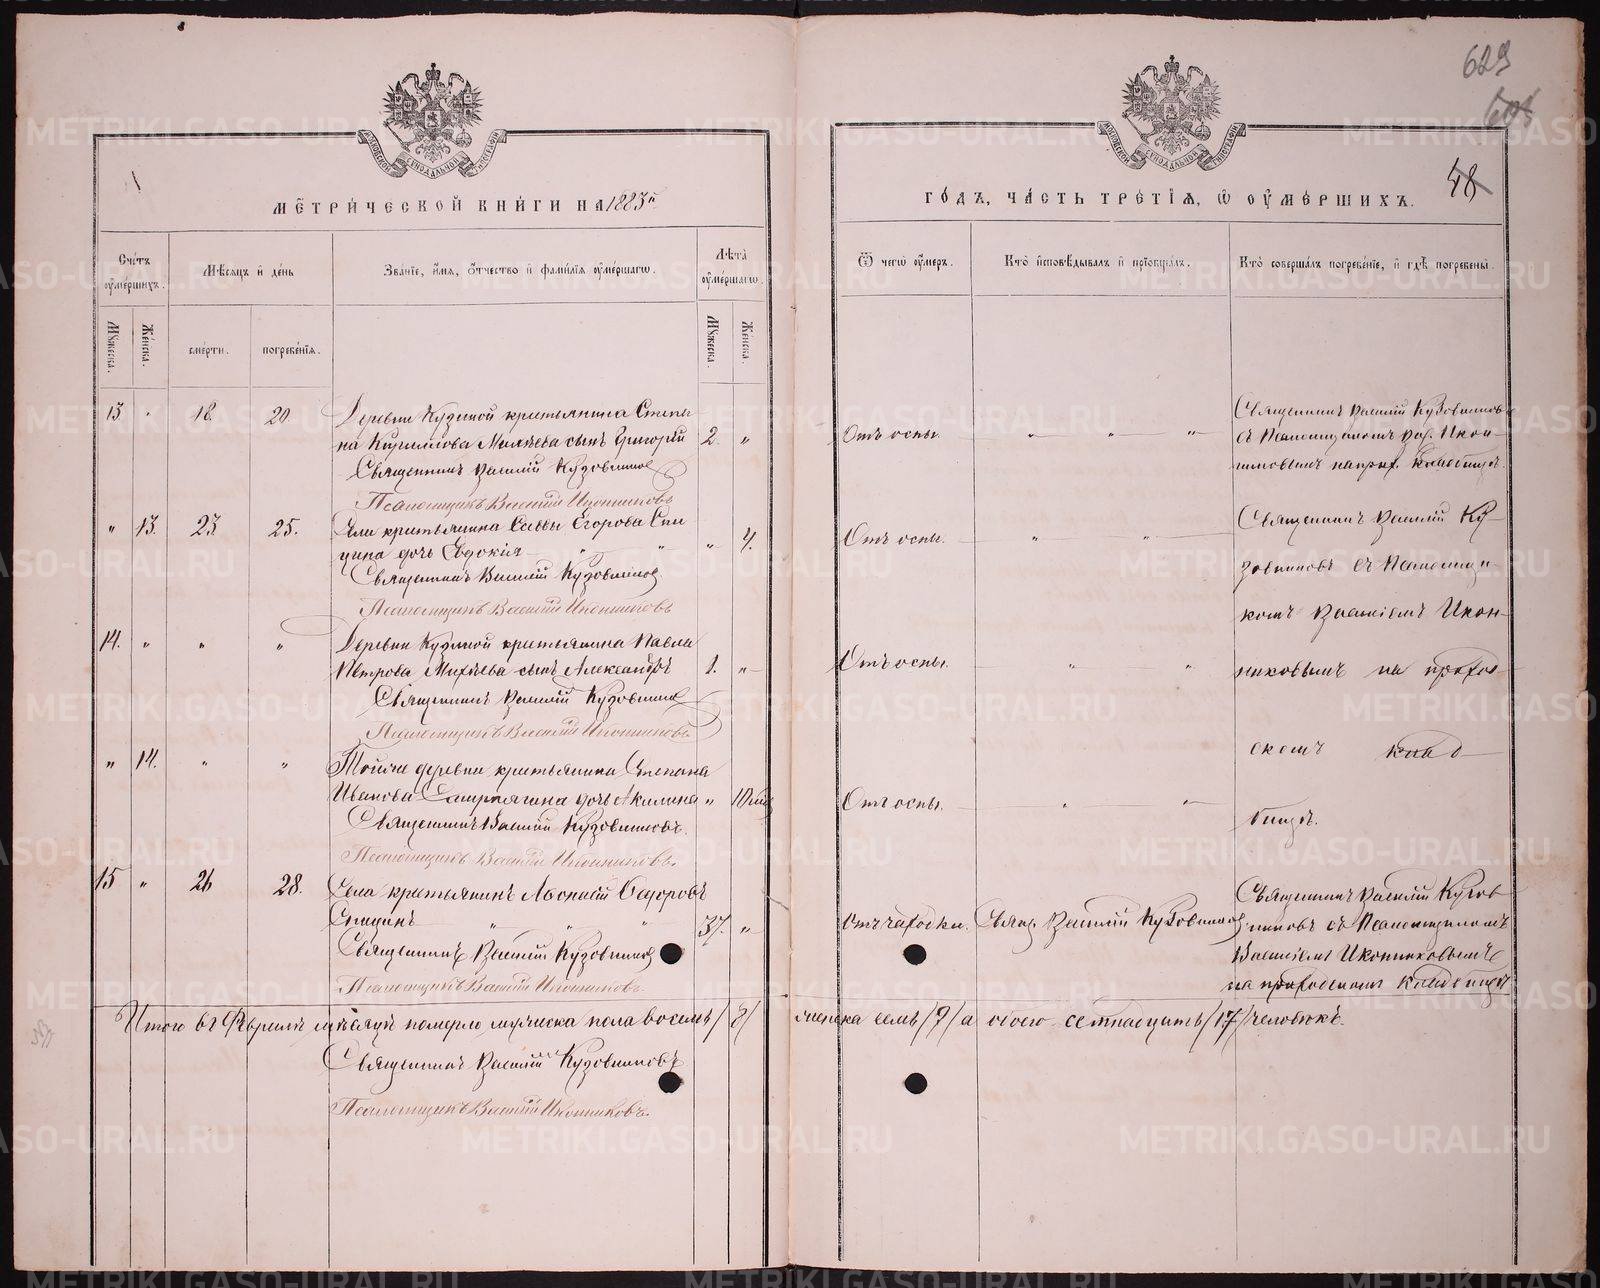 629
48
МЕТРИЧЕСКОЙ КНИГИ НА 1883й
ГОДЪ, ЧАСТЬ ТРЕТІЯ, Ѡ ОУМЕРШИХЪ.
Счетъ оумершихъ.
Мѣсяцъ и день
Званіе, имя, отчество и фамилія оумершагѡ.
Лѣта оумершагѡ.
Ѿ чегѡ оумеръ.
Кто исповѣдывалъ и пріобщалъ.
Кто совершалъ погребеніе, и гдѣ погребены.
Мужеска.
Женска.
смерти.
погребенія.
Мужеска.
Женска.
13 18. 20
Деревни Кузиной крестьянина Степа
на Михѣева сынъ Григорій 2. „
Священникъ Василій Кузовниковъ
Псаломщикъ Василій Иконниковъ
Отъ оспы. „ „ „
Священникъ Василій Кузовниковъ
съ Псаломщикомъ Вас. Икон-
никовымъ на прих. кладбищѣ.
„ 13. 23 25.
Села крестьянина Саввы Егорова Спи
цина дочь Евдокія „ „ „ 4.
Священникъ Василій Кузовниковъ
Псаломщикъ Василій Иконниковъ
Отъ оспы. „ „
Священникъ Василій Ку-
зовниковъ съ Псаломщи-
комъ Василіемъ Икон-
никовымъ на приход-
скомъ клад-
бищѣ.
14. „ „ „
Деревни Кузиной крестьянина Павла
Петрова Михѣева сынъ Александръ 1. „
Священникъ Василій Кузовниковъ
Псаломщикъ Василій Иконниковъ
Отъ оспы. „ „
„ 14. „ „
Тойже деревни крестьянина Степана
Иванова дочь Акилина „
Священникъ Василій Кузовниковъ.
Псаломщикъ Василій Иконниковъ.
Отъ оспы. „ „
15 „ 26 28.
Села крестьянинъ Ѳедоровъ
Спицинъ „ „ „ 37. „
Священникъ Василій Кузовниковъ
Псаломщикъ Василій Иконниковъ.
Отъ чахотки. Священ. Василій Кузовниковъ
Священникъ Василій Кузов
никовъ съ Псаломщикомъ
Василіемъ Иконниковымъ
на приходскомъ кладбищѣ
Итого въ Февралѣ мѣсяцѣ померло мужеска пола восемь /8/ женска семь /7/ а обоего семнадцать /17/ человѣкъ.
Священникъ Василій Кузовниковъ
Псаломщикъ Василій Иконниковъ.
METRIKI.GASO-URAL.RU